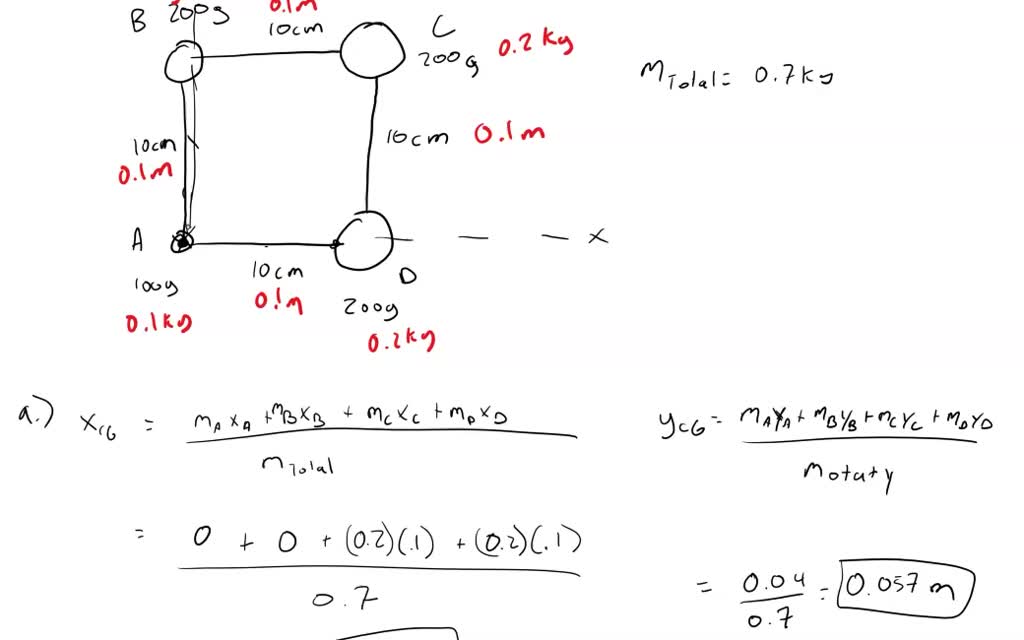 B 200g 0.1m
10cm
C
200g 0.2 kg
mTotal = 0.7kg
10cm
0.1m
10cm 0.1m
A
100g
0.1kg
10cm
0.1m
D
200g
0.2kg
x
a.) xcG = mAxA + mBxB + mCxC + mDxD
mTotal
yCG = mAyA + mByB + mCyC + mDyD
motaty
= 0 + 0 + (0.2)(.1) + (0.2)(.1)
0.7
= 0.04 = 0.057 m
0.7